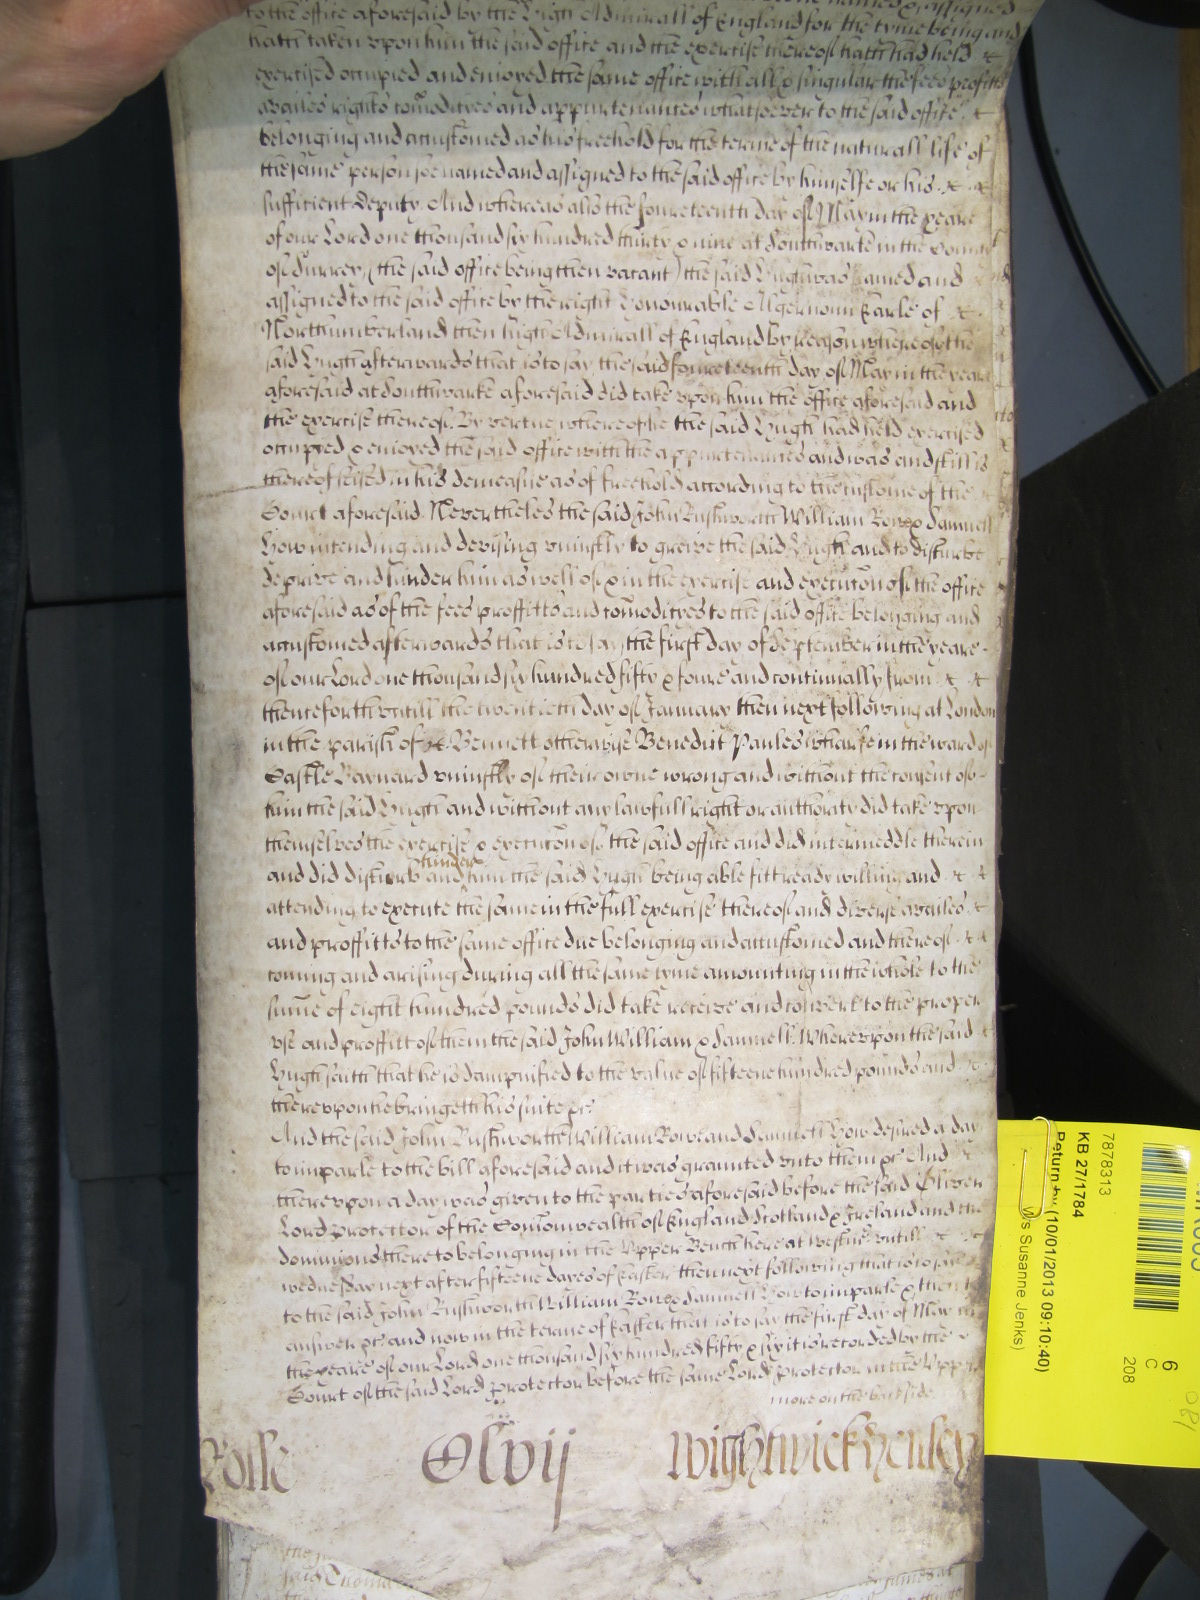 to the office aforesaid by the High Admirall of England for the tyme being and
hath taken vpon him the said office and the exercise thereof hath had held &
exercised occupied and enioyed the same office with all & singular the fees profitts
availes rights comodityes and appurtenances whatsoever to the said office &
belonging and accustomed as his freehold for the terme of the naturall life of
the same person soe named and assigned to the said office by himselfe or his & &
sufficient deputy. And whereas also the foureteenth day of May in the yeare
of our Lord one thousand six hundred thirty & nine at Southwarke in the County
of Surrey (the said office being then vacant) the said Hugh was named and
assigned to the said office by the right Honourable Algernoun Earle of &
Northumberland then high Admirall of England by reason whereof the
said Hugh afterwards that is to say the said foureteenth day of May in the yeare
aforesaid at Southwarke aforesaid did take vpon him the office aforesaid and
the exercise thereof. By vertue whereof he the said Hugh had held exercised
occupyed & enioyed the said office with the appurtenances and was and still is
thereof seised in his demeasne as of freehold according to the custome of the &
Court aforesaid. Nevertheles the said John Rushworth William Rowe & Samuell
How intending and devising vniustly to greive the said Hugh and to disturbe
deprive and hinder him as well of & in the exercise and execucon of the office
aforesaid as of the fees proffitts and comodityes to the said office belonging and
accustomed afterwards that is to say the first day of September in the yeare
of our Lord one thousand six hundred fifty & foure and continually from & &
thenceforth vntill the twentieth day of January then next following at London
in the parish of St. Bennett otherwise Benedict Paules Wharfe in the ward of
Castle Baynard vniustly of their owne wrong and without the consent of
him the said Hugh and without any lawfull right or authority did take vpon
themselves the exercise & execucon of the said office and did intermeddle therein
and did disturb and hinder him the said Hugh being able fitt ready willing and & &
attending to execute the same in the full exercise thereof and diverse availes &
and proffitts to the same office due belonging and accustomed and thereof & &
coming and arising during all the same tyme amounting in the whole to the
sume of eight hundred pounds did take receive and convert to the proper
vse and proffitt of them the said John William & Samuell. Wherevpon the said &
Hugh saith that he is dampnified to the value of fifteene hundred pounds and &
therevpon he bringeth his suite &c.
And the said John Rushworth William Rowe and Samuell How desired a day
to imparle to the bill aforesaid and it was graunted vnto them &c. And &
therevpon a day was given to the parties aforesaid before the said Oliver
Lord protector of the Comonwealth of England Scotland & Ireland and the
dominions thereto belonging in the Vpper Bench here at Westmr vntill & &
wednesday next after fifteene dayes of Easter then next following that is to say
to the said John Rushworth William Rowe & Samuell How to imparle & then to
answer &c. and now in the terme of Easter that is to say the first day of May in
the yeare of our Lord one thousand six hundred fifty & six it is recorded by the
Court of the said Lord protector before the same Lord protector in the Vpper
more on the backside
Rolle Clvij Wightwick Henley
7878313
KB 27/1784
Return by (10/01/2013 09:10:40)
Ws Susanne Jenks)
6
C
208